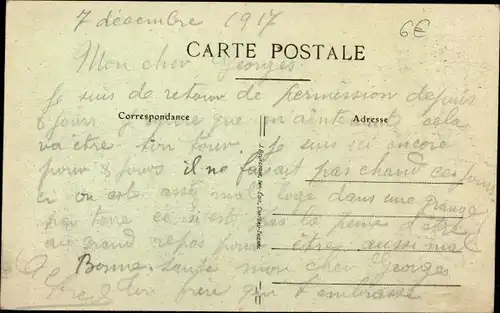 7 décembre 1917
6€
CARTE POSTALE
Mon cher Georges
Je suis de retour de permission depuis
8 jours j'espère que maintenant cela
Correspondance
Adresse
va être ton tour. Je suis ici encore
pour 8 jours il ne faisait pas chaud ces jours
ci on est assez mal logé dans une grange
par terre ce n'est pas la peine d'être
au grand repos pour être aussi mal
Bonne santé mon cher Georges
ton frère qui t'embrasse
Fred